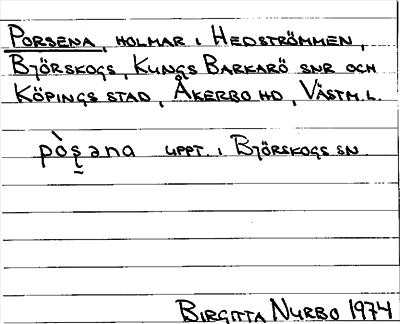 PORSENA, HOLMAR I HEDSTRÖMMEN,
BJÖRSKOGS, KUNGS BARKARÖ SNR OCH
KÖPINGS STAD, ÅKERBO HD, VÄSTM.L.
pòs̨̰əna UPPT. I BJÖRSKOGS SN.
BIRGITTA NYRBO 1974